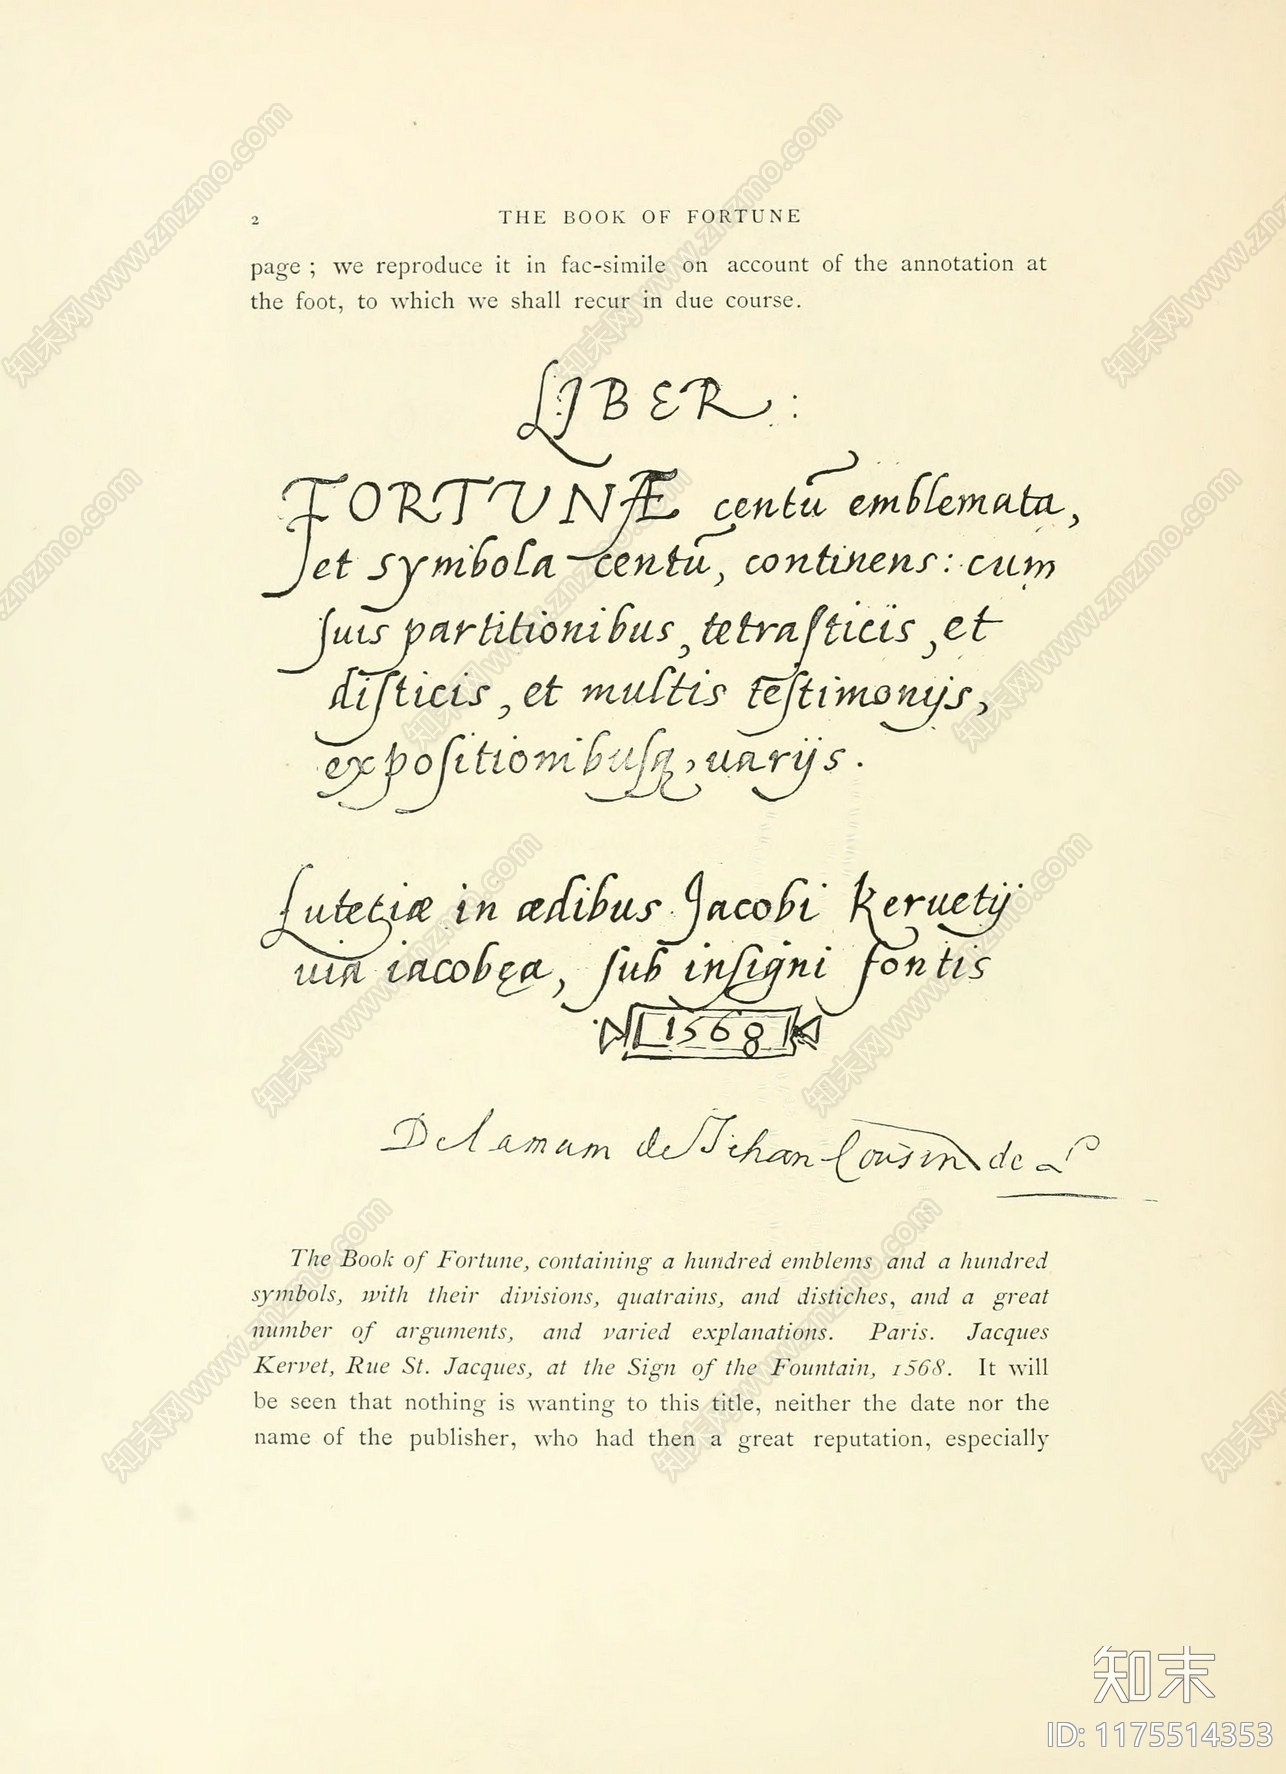 2
THE BOOK OF FORTUNE
page ; we reproduce it in fac-simile on account of the annotation at
the foot, to which we shall recur in due course.
LIBER :
FORTUNÆ centū emblemata,
et symbola centū, continens: cum
ſuis partitionibus, tetraſticis, et
diſticis, et multis teſtimonijs,
expoſitionibuſq, uarijs.
Lutetiæ in ædibus Jacobi Keruetij
uia iacobęa, ſub inſigni fontis
1568
De la main de Jehan Cousin de L
The Book of Fortune, containing a hundred emblems and a hundred
symbols, with their divisions, quatrains, and distiches, and a great
number of arguments, and varied explanations. Paris. Jacques
Kervet, Rue St. Jacques, at the Sign of the Fountain, 1568. It will
be seen that nothing is wanting to this title, neither the date nor the
name of the publisher, who had then a great reputation, especially
知末网www.znzmo.com
知末
ID: 1175514353